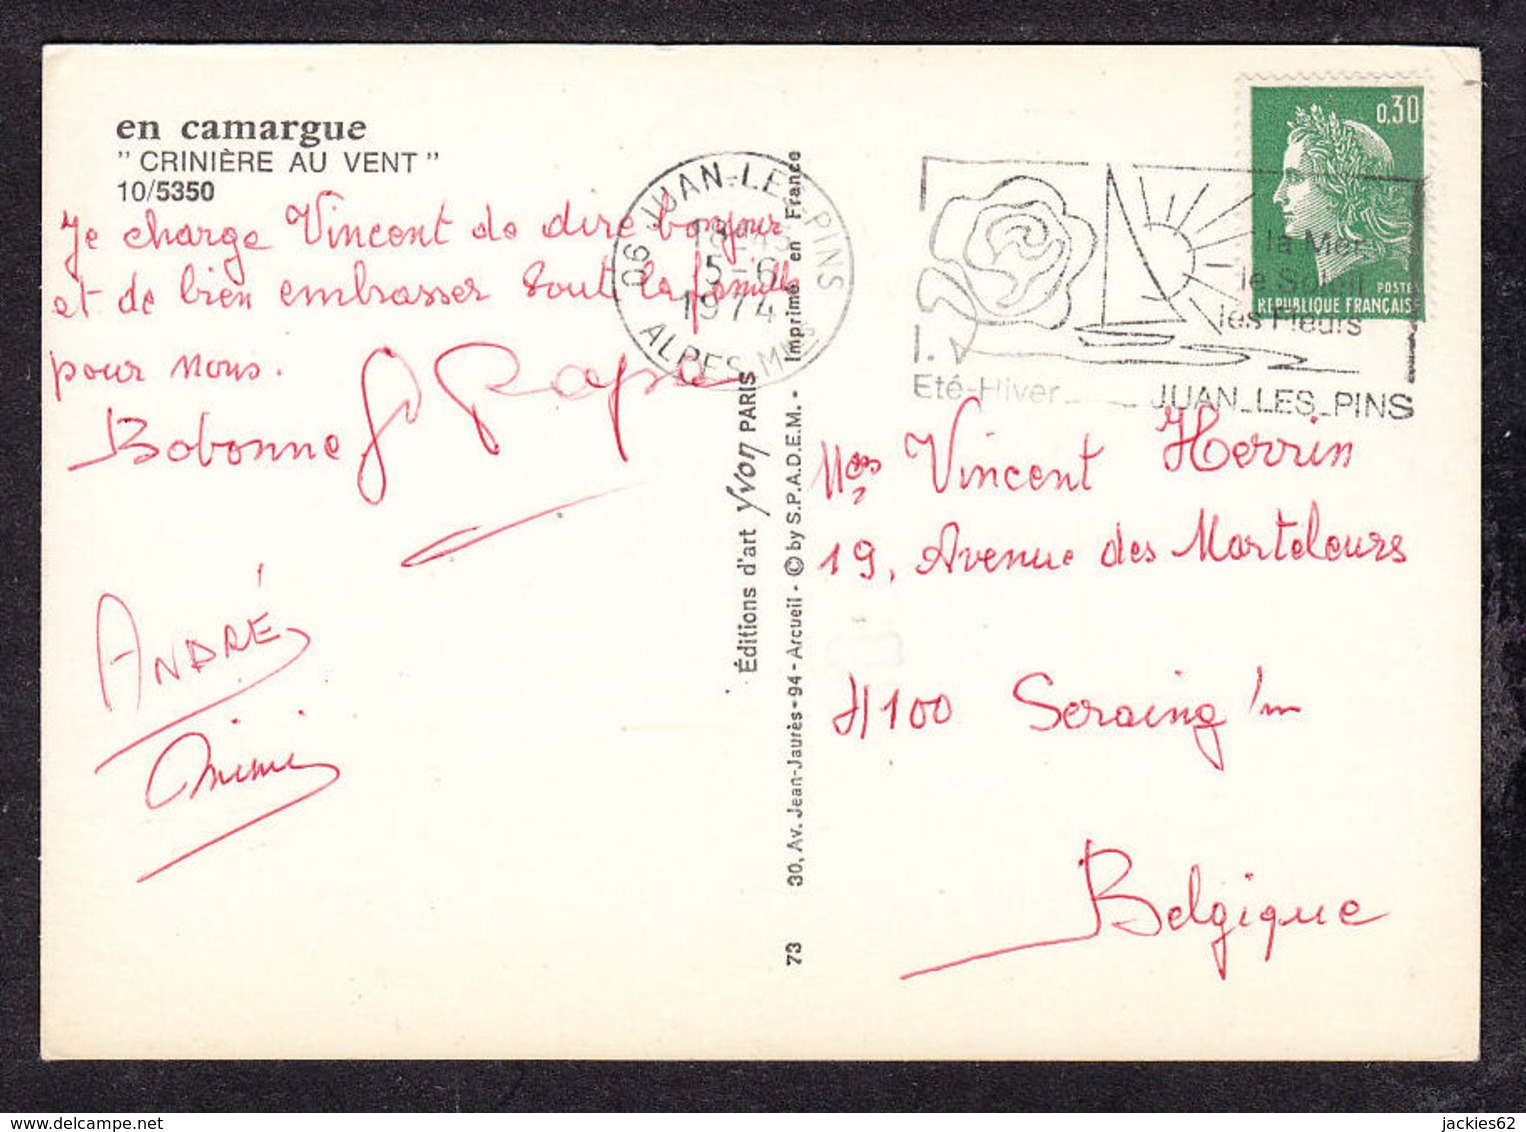 en camargue
" CRINIÈRE AU VENT "
10/5350
Je charge Vincent de dire bonjour
et de bien embrasser tout la famille
pour nous.
Bobonne & Papa
ANDRÉ
Mimi
06 JUAN-LES-PINS
5-6
1974
ALPES-MMES
Imprimé en France
Éditions d'art Yvon PARIS
30, Av. Jean-Jaurès - 94 - Arcueil - © by S.P.A.D.E.M. -
73
la Mer
le Soleil
les Fleurs
Eté-Hiver JUAN_LES_PINS
0,30
POSTES
REPUBLIQUE FRANÇAISE
Vincent Herrin
19, Avenue des Marteleurs
4100 Seraing
Belgique
jackies62